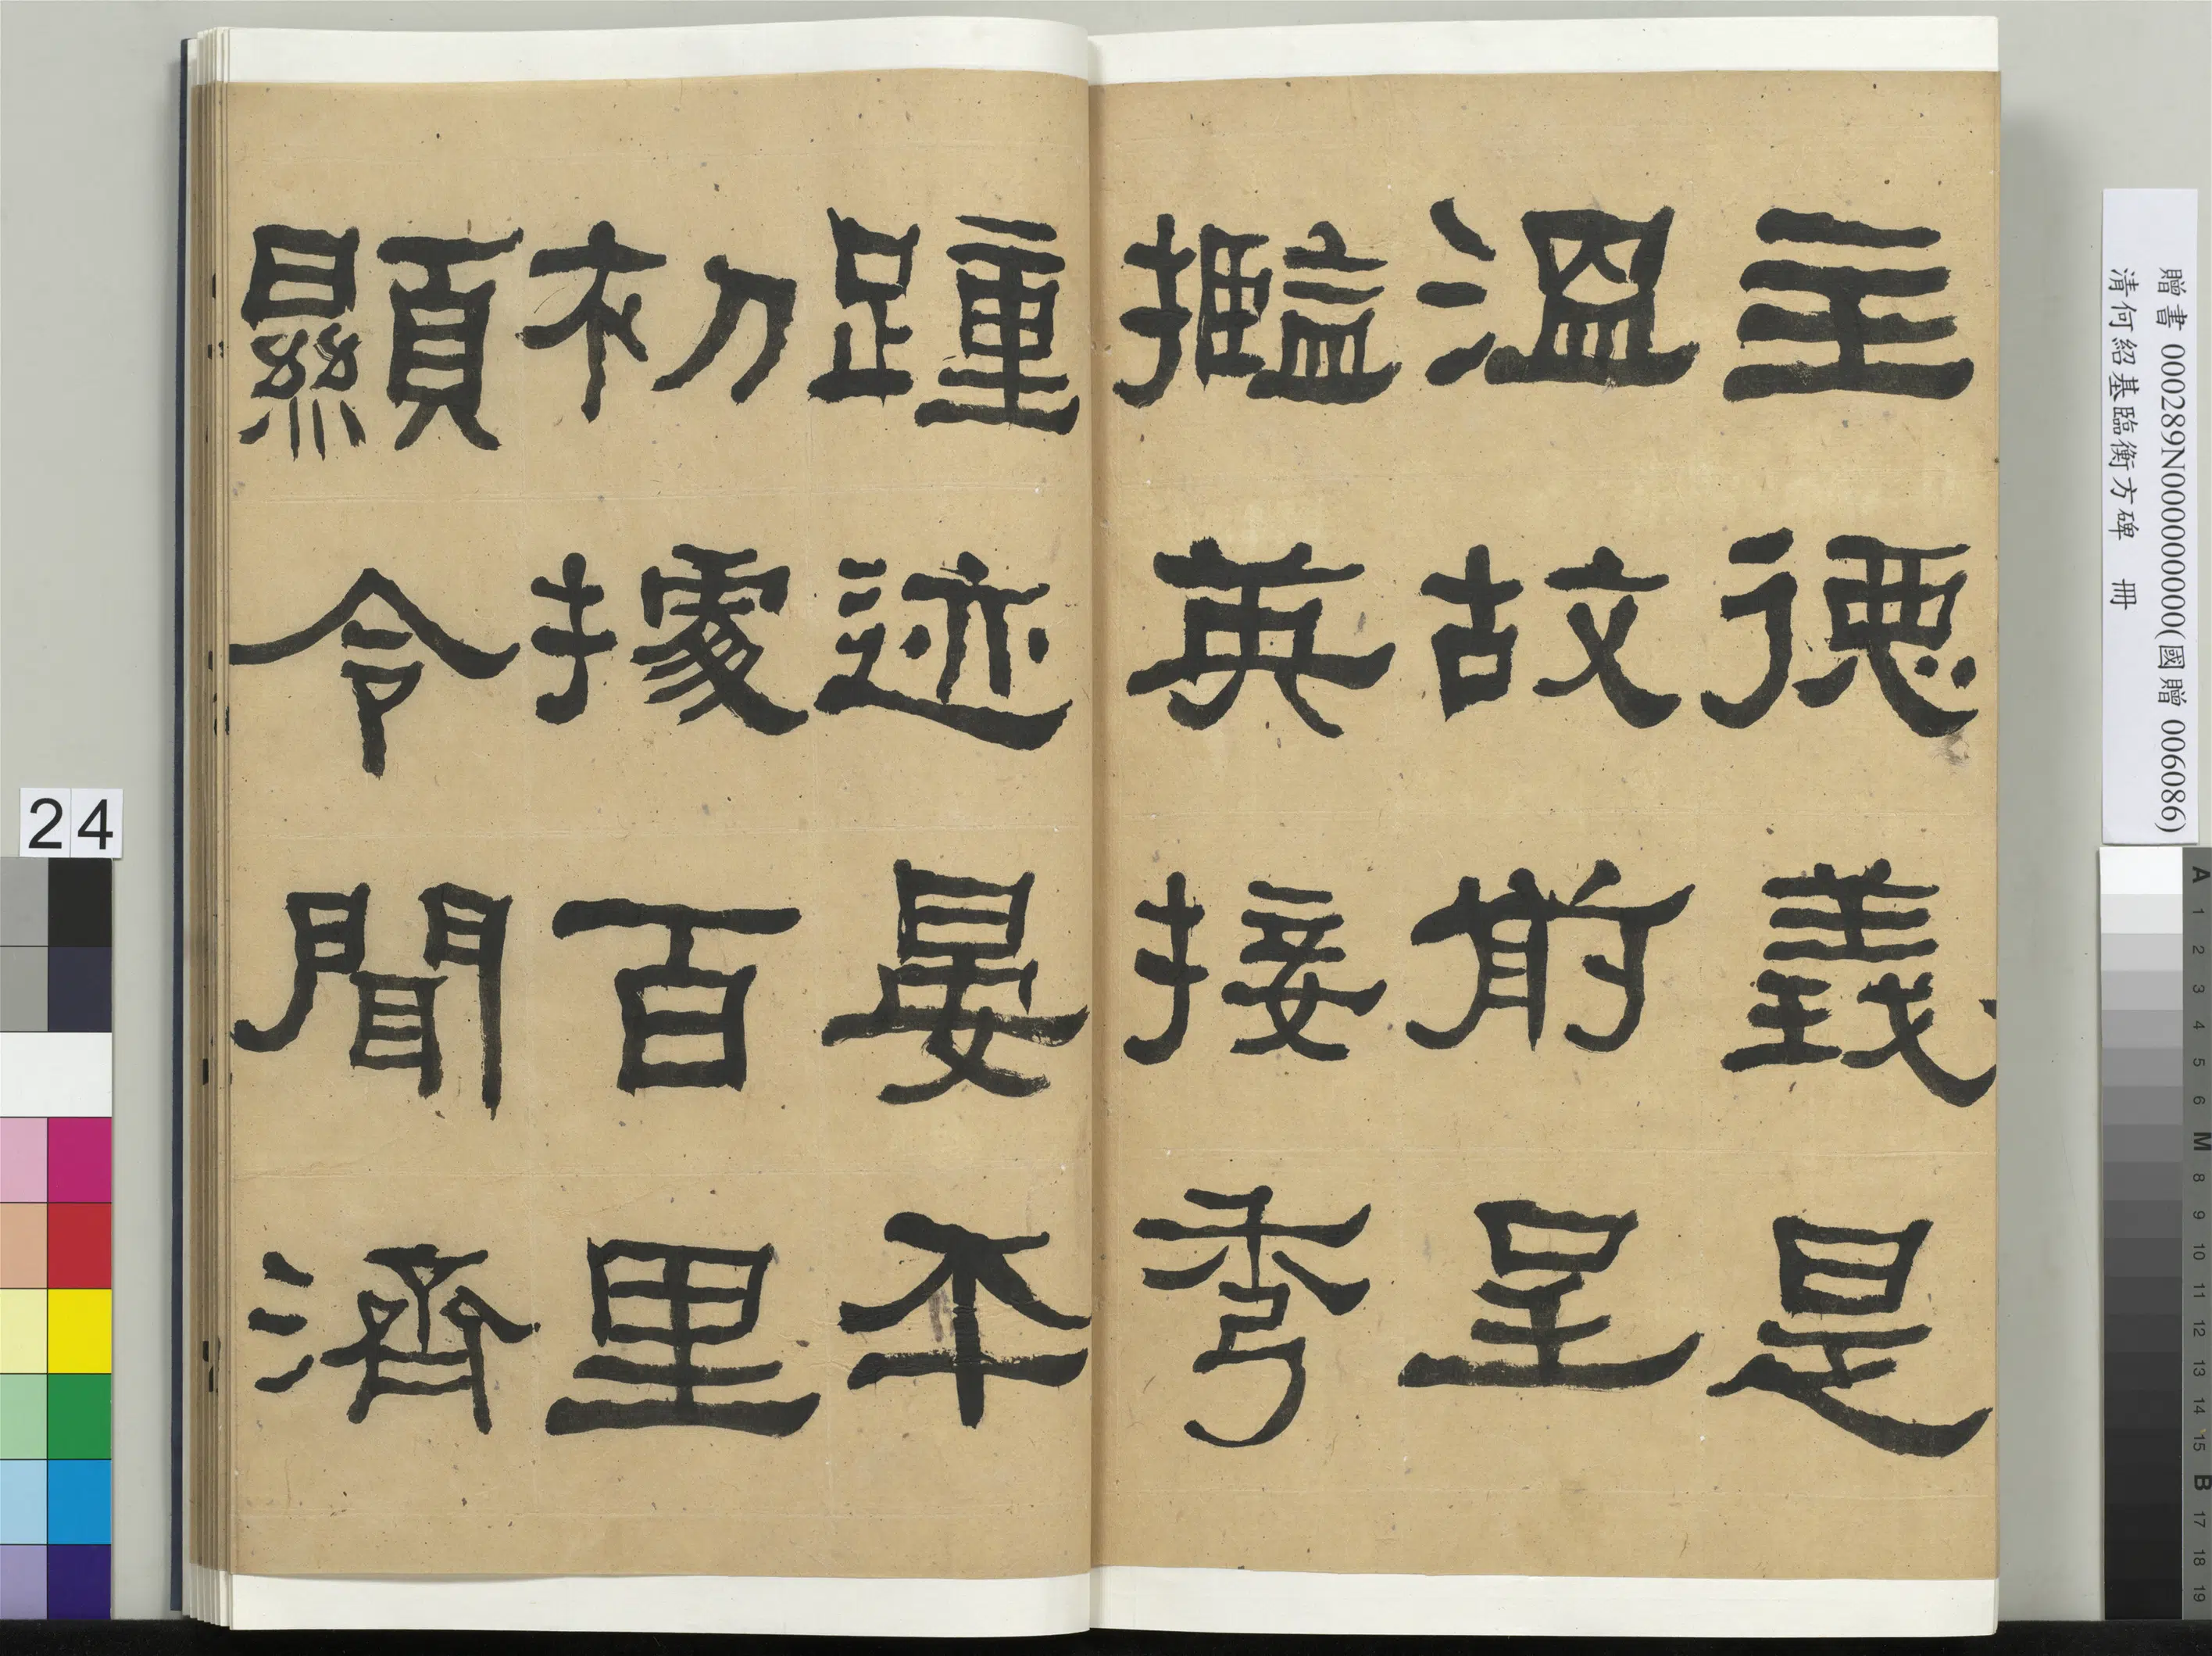 主德義是
溫故前呈
攬英接秀
踵迹晏平
初據百里
顯令聞濟
贈書 000289N000000000(國贈 006086)
清何紹基臨衡方碑 冊
24
A 1 2 3 4 5 6 M 8 9 10 11 12 13 14 15 B 17 18 19